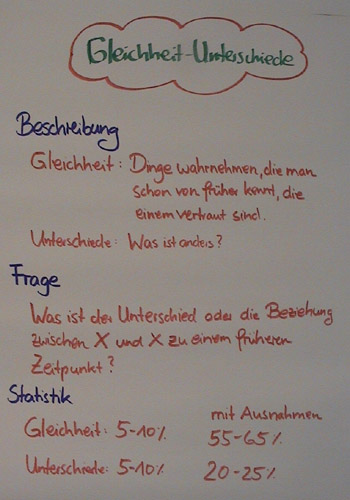 Gleichheit-Unterschiede
Beschreibung
Gleichheit: Dinge wahrnehmen, die man
schon von früher kennt, die
einem vertraut sind.
Unterschiede: Was ist anders?
Frage
Was ist der Unterschied oder die Beziehung
zwischen X und X zu einem früheren
Zeitpunkt?
Statistik
mit Ausnahmen
Gleichheit: 5-10% 55-65%
Unterschiede: 5-10% 20-25%